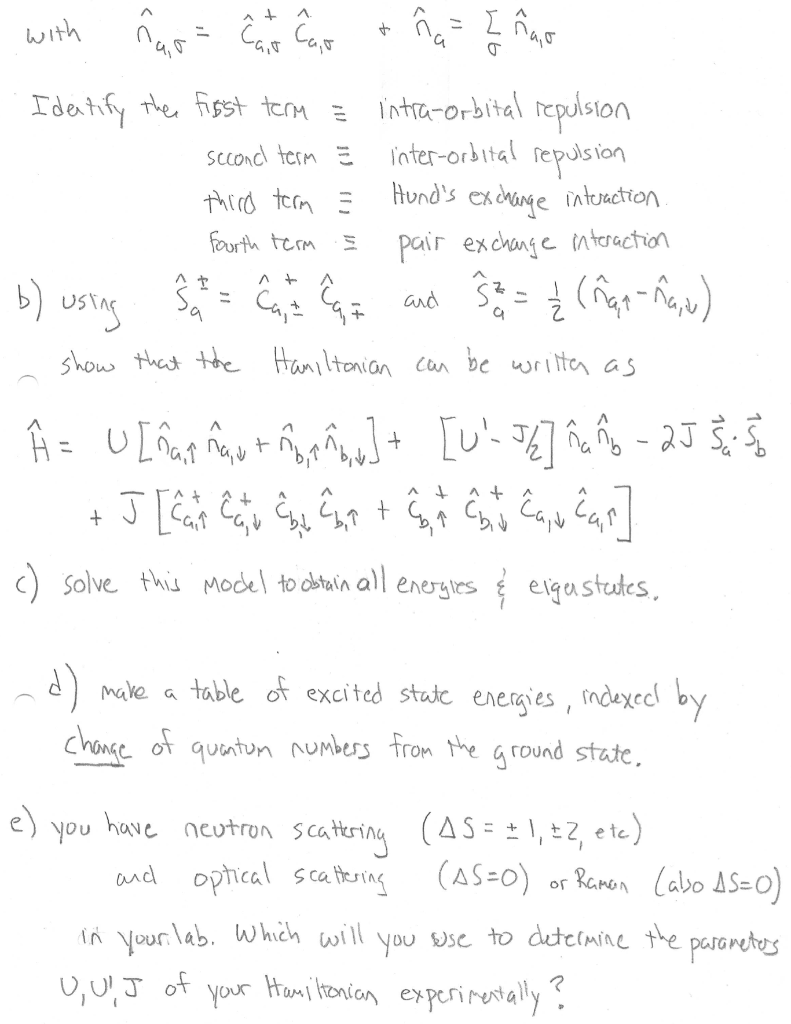 with n̂_{a,σ} = ĉ⁺_{a,σ} ĉ_{a,σ} + n̂_a = Σ_σ n̂_{a,σ}
Identify the first term ≡ intra-orbital repulsion
second term ≡ inter-orbital repulsion
third term ≡ Hund's exchange interaction.
fourth term ≡ pair exchange interaction
b) using Ŝ_a^± = ĉ⁺_{a,±} ĉ_{a,∓} and Ŝ_a^z = 1/2 (n̂_{a,↑} - n̂_{a,↓})
show that the Hamiltonian can be written as
Ĥ = U[n̂_{a,↑} n̂_{a,↓} + n̂_{b,↑} n̂_{b,↓}] + [U' - J/2] n̂_a n̂_b - 2J S⃗_a · S⃗_b
+ J [ĉ⁺_{a,↑} ĉ⁺_{a,↓} ĉ_{b,↓} ĉ_{b,↑} + ĉ⁺_{b,↑} ĉ⁺_{b,↓} ĉ_{a,↓} ĉ_{a,↑}]
c) solve this model to obtain all energies & eigenstates.
d) make a table of excited state energies, indexed by
change of quantum numbers from the ground state.
e) you have neutron scattering (ΔS = ±1, ±2, etc)
and optical scattering (ΔS=0) or Raman (also ΔS=0)
in your lab. Which will you use to determine the parameters
U, U', J of your Hamiltonian experimentally?